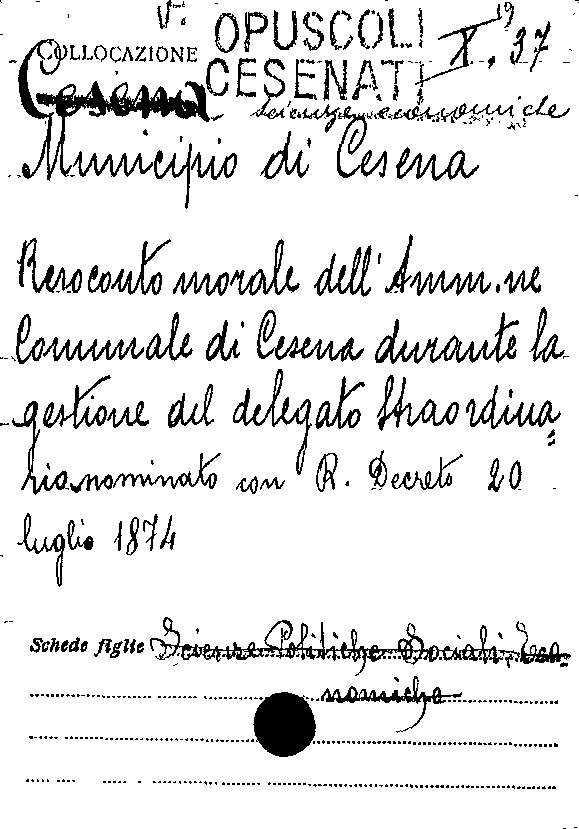 V. OPUSCOLI 19
COLLOCAZIONE CESENATI X. 37
Cesena
scienze economiche
Municipio di Cesena
Resoconto morale dell'Amm.ne
Comunale di Cesena durante la
gestione del delegato Straordina=
rio nominato con R. Decreto 20
luglio 1874
Schede figlie Scienze Politiche Sociali, Eco=
nomiche